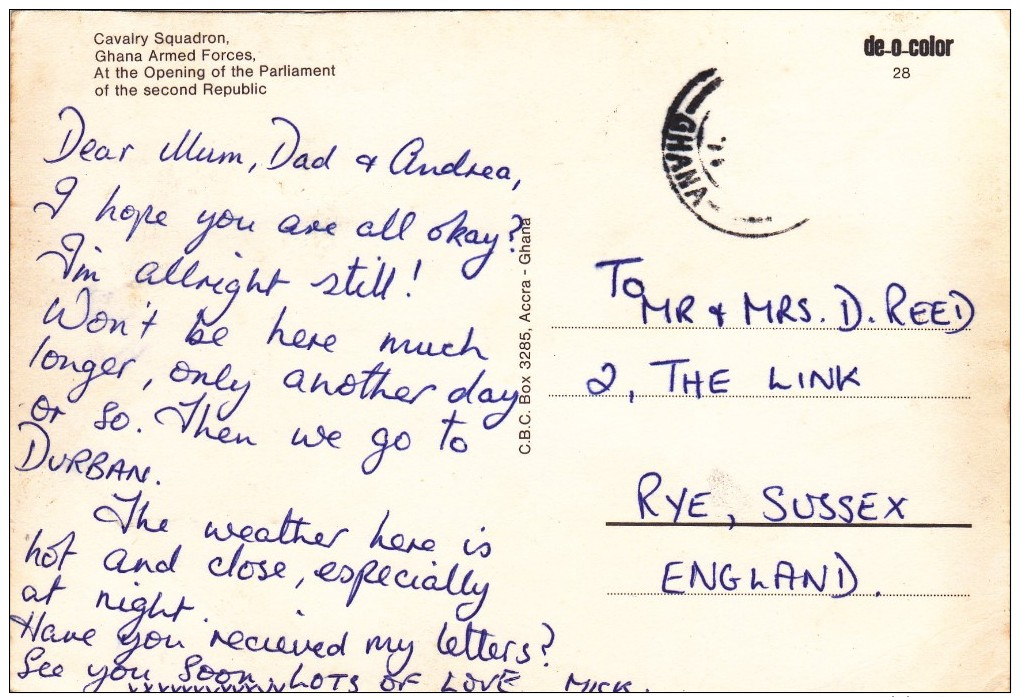 Cavalry Squadron,
Ghana Armed Forces,
At the Opening of the Parliament
of the second Republic
Dear Mum, Dad & Andrea,
I hope you are all okay?
I'm allright still!
Won't be here much
longer, only another day
or so. Then we go to
DURBAN.
The weather here is
hot and close, especially
at night.
Have you recieved my letters?
See you soon LOTS OF LOVE MICK.
xxxxxxxxxxx
C.B.C. Box 3285, Accra - Ghana
de-o-color
28
GHANA
To
MR & MRS. D. REED
2, THE LINK
RYE, SUSSEX
ENGLAND.